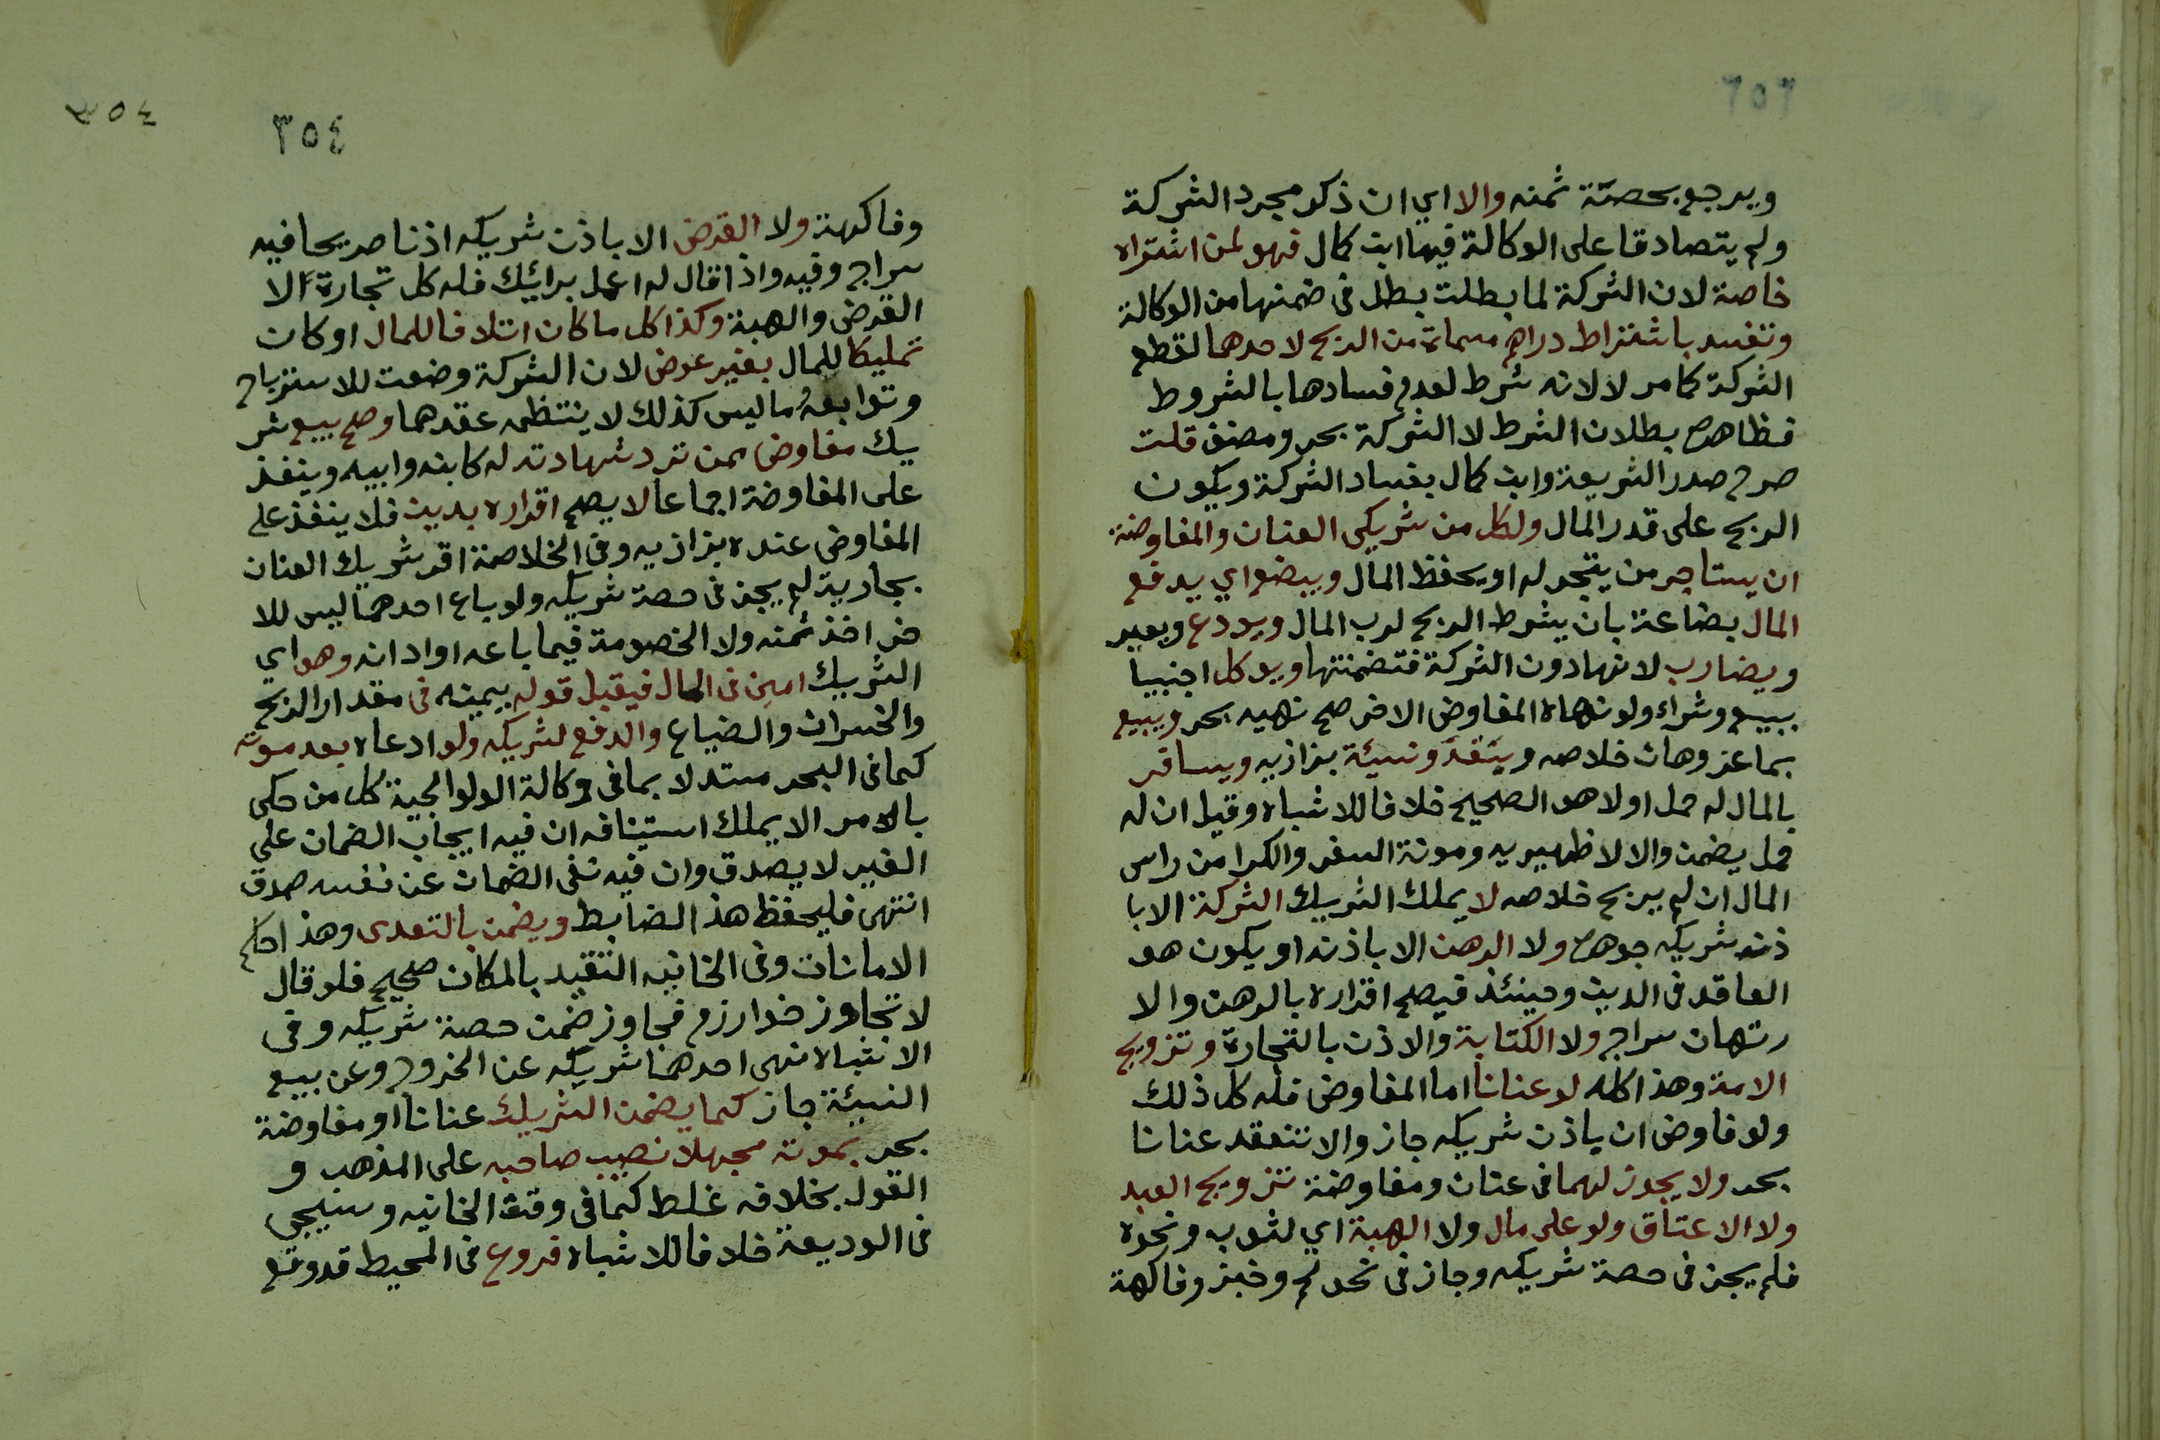 ويرجع بحصته ثمنه والا اي ان ذكر مجرد الشركة
ولم يتصادقا على الوكالة فيها ابن كمال فهو لمن اشتراه
خاصة لان الشركة لما بطلت بطل فى ضمنها من الوكالة
وتفسد باشتراط دراهم مسماة من الربح لاحدهما لقطع
الشركة كما مر لا لانه شرط لعدم فسادها بالشروط
فظاهره بطلان الشرط لا الشركة بحر ومصنف قلت
صرح صدر الشريعة وابن كمال بفساد الشركة ويكون
الربح على قدر المال ولكل من شريكى العنان والمفاوضة
ان يستاجر من يتجر له او يحفظ المال ويبضع اي يدفع
المال بضاعة بان يشرط الربح لرب المال ويودع ويعير
ويضارب لانها دون الشركة فتضمنتها ويوكل اجنبيا
ببيع وشراء ولو نهاه المفاوض الاخر صح نهيه بحر ويبيع
بما عز وهان خلاصه وبنقد ونسيئة بزازيه ويسافر
بالمال له حمل اولا هو الصحيح خلافا للاشباه وقيل ان له
حمل يضمن والا لا ظهيريه ومونة السفر والكرا من راس
المال ان لم يربح خلاصه لا يملك الشريك الشركة الا با
ذن شريكه جوهره ولا الرهن الا باذنه او يكون هو
العاقد فى الدين وحينئذ فيصح اقراره بالرهن والا
رتهان سراج ولا الكتابة والاذن بالتجارة وتزويج
الامة وهذا كله لو عنانا اما المفاوض فله كل ذلك
ولو فاوض ان باذن شريكه جاز والا تنعقد عنانا
بحر ولا يجوز لهما فى عنان ومفاوضة تزويج العبد
ولا الاعتاق ولو على مال ولا الهبة اي لثوب ونحوه
فلم يجز فى حصة شريكه وجاز فى نحو لحم وخبز وفاكهة
٣٥٤
٣٥٤
وفاكهة ولا القرض الا باذن شريكه اذنا صريحا فيه
سراج وفيه واذا قال له اعمل برائيك فله كل تجارة الا
القرض والهبة وكذا كل ما كان اتلافا للمال او كان
تمليكا للمال بغير عوض لان الشركة وضعت للاسترباح
وتوابعه وما ليس كذلك لا ينتظمه عقدهما وصح بيع شر
يك مفاوض ممن ترد شهادته له كابنه وابيه وينفذ
على المفاوضة اجماعا لا يصح اقراره بدين فلا ينفذ على
المفاوض عنده بزازيه وفى الخلاصة اقر شريك العنان
بجارية لم يجز فى حصة شريكه ولو باع احدهما ليس للا
خر اخذ ثمنه ولا الخصومة فيما باعه او ادانه وهو اي
الشريك امين فى المال فيقبل قوله بيمينه فى مقدار الربح
والخسران والضياع والدفع لشريكه ولو ادعاه بعد موته
كما فى البحر مستدلا بما فى وكالة الولوالجية كل من حكى
بالامر الا يملك استينافه ان فيه ايجاب الضمان على
الغير لا يصدق وان فيه نفى الضمان عن نفسه صدق
انتهى فليحفظ هذ الضابط ويضمن بالتعدى وهذ احكم
الامانات وفى الخانيه التقييد بالمكان صحيح فلو قال
لا تجاوز خوارزم فجاوز ضمن حصة شريكه وفى
الاشباه نهى احدهما شريكه عن الخروج وعن بيع
النسيئة جاز كما يضمن الشريك عنانا او مفاوضة
بحر بموته مجهلا نصيب صاحبه على المذهب و
القول بخلافه غلط كما فى وقف الخانيه وسيجى
فى الوديعة خلافا للاشباه فروع فى المحيط قد وقع